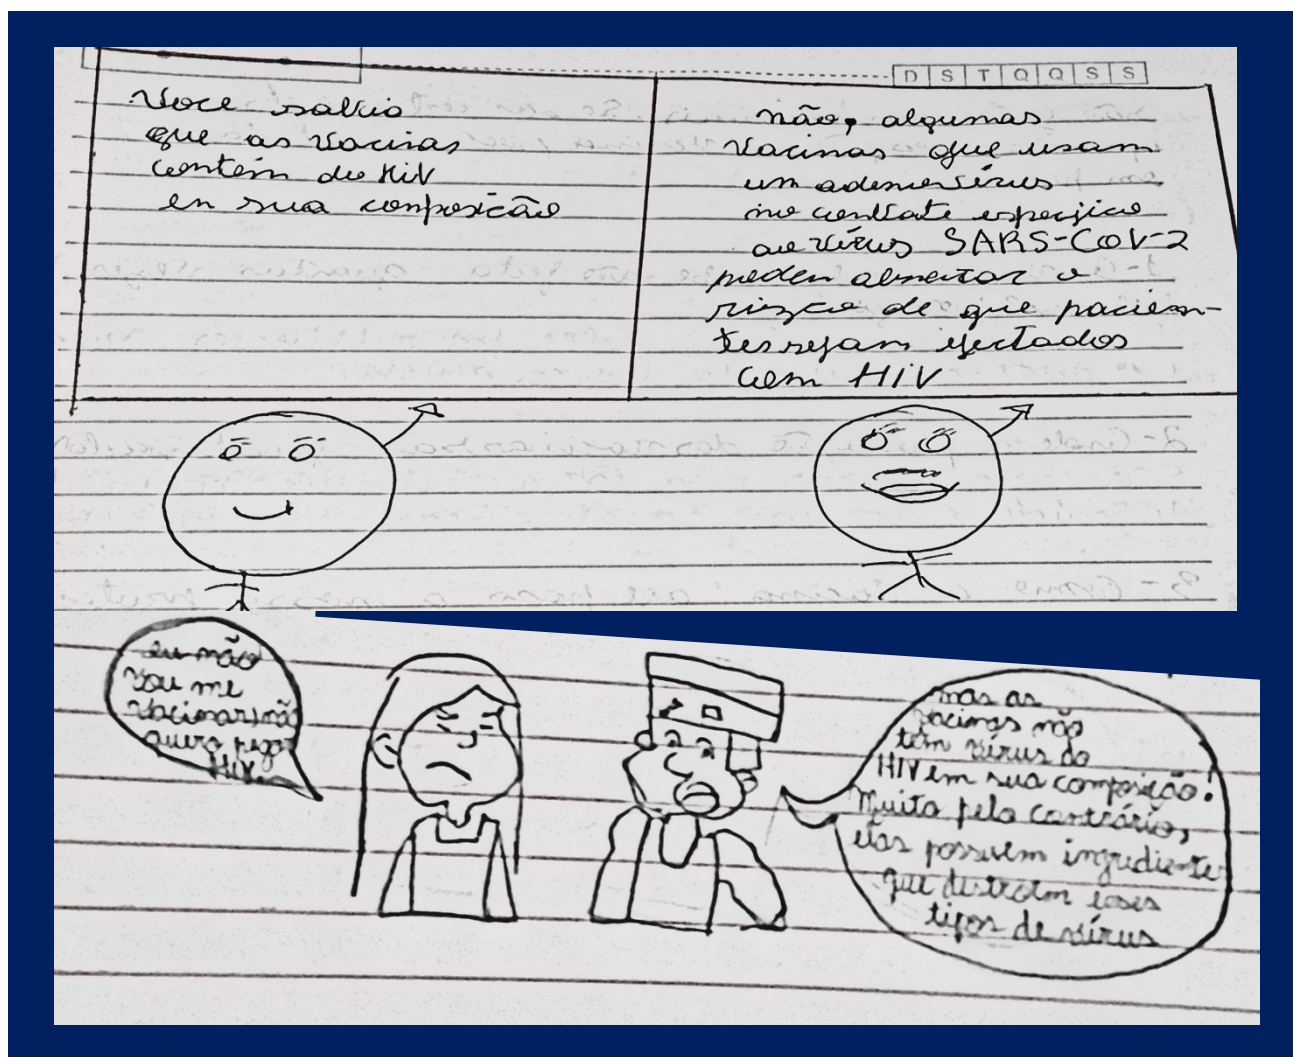 D S T Q Q S S
Voce sabia
que as vacinas
contém do HiV
en sua composição
não, algumas
vacinas que usam
um adenovírus
no combate específico
ao vírus SARS-CoV-2
poden aumentar o
risco de que pacien-
tes sejam efectados
com HIV
eu não
vou me
vacinar, não
quero pegar
HIV.
mas as
vacinas não
tem vírus do
HIV em sua composição!
Muito pelo contrário,
elas possuem ingrediente
que destroem esses
tipos de vírus